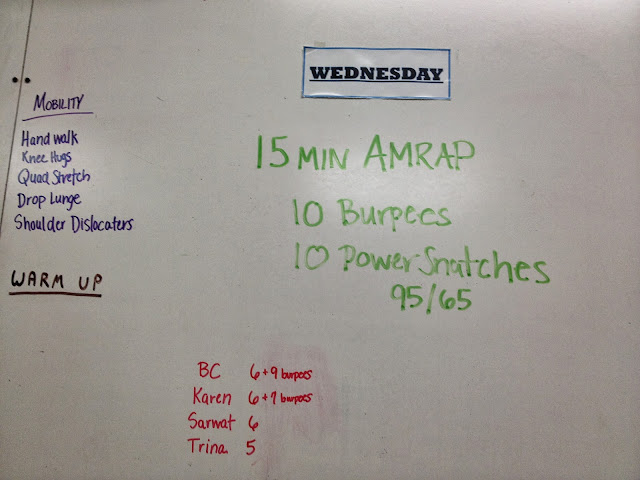 WEDNESDAY
MOBILITY
Handwalk
Knee Hugs
Quad Stretch
Drop Lunge
Shoulder Dislocaters
WARM UP
15 MIN AMRAP
10 Burpees
10 Power Snatches
95/65
BC 6+9 burpees
Karen 6+7 burpees
Sarwat 6
Trina 5